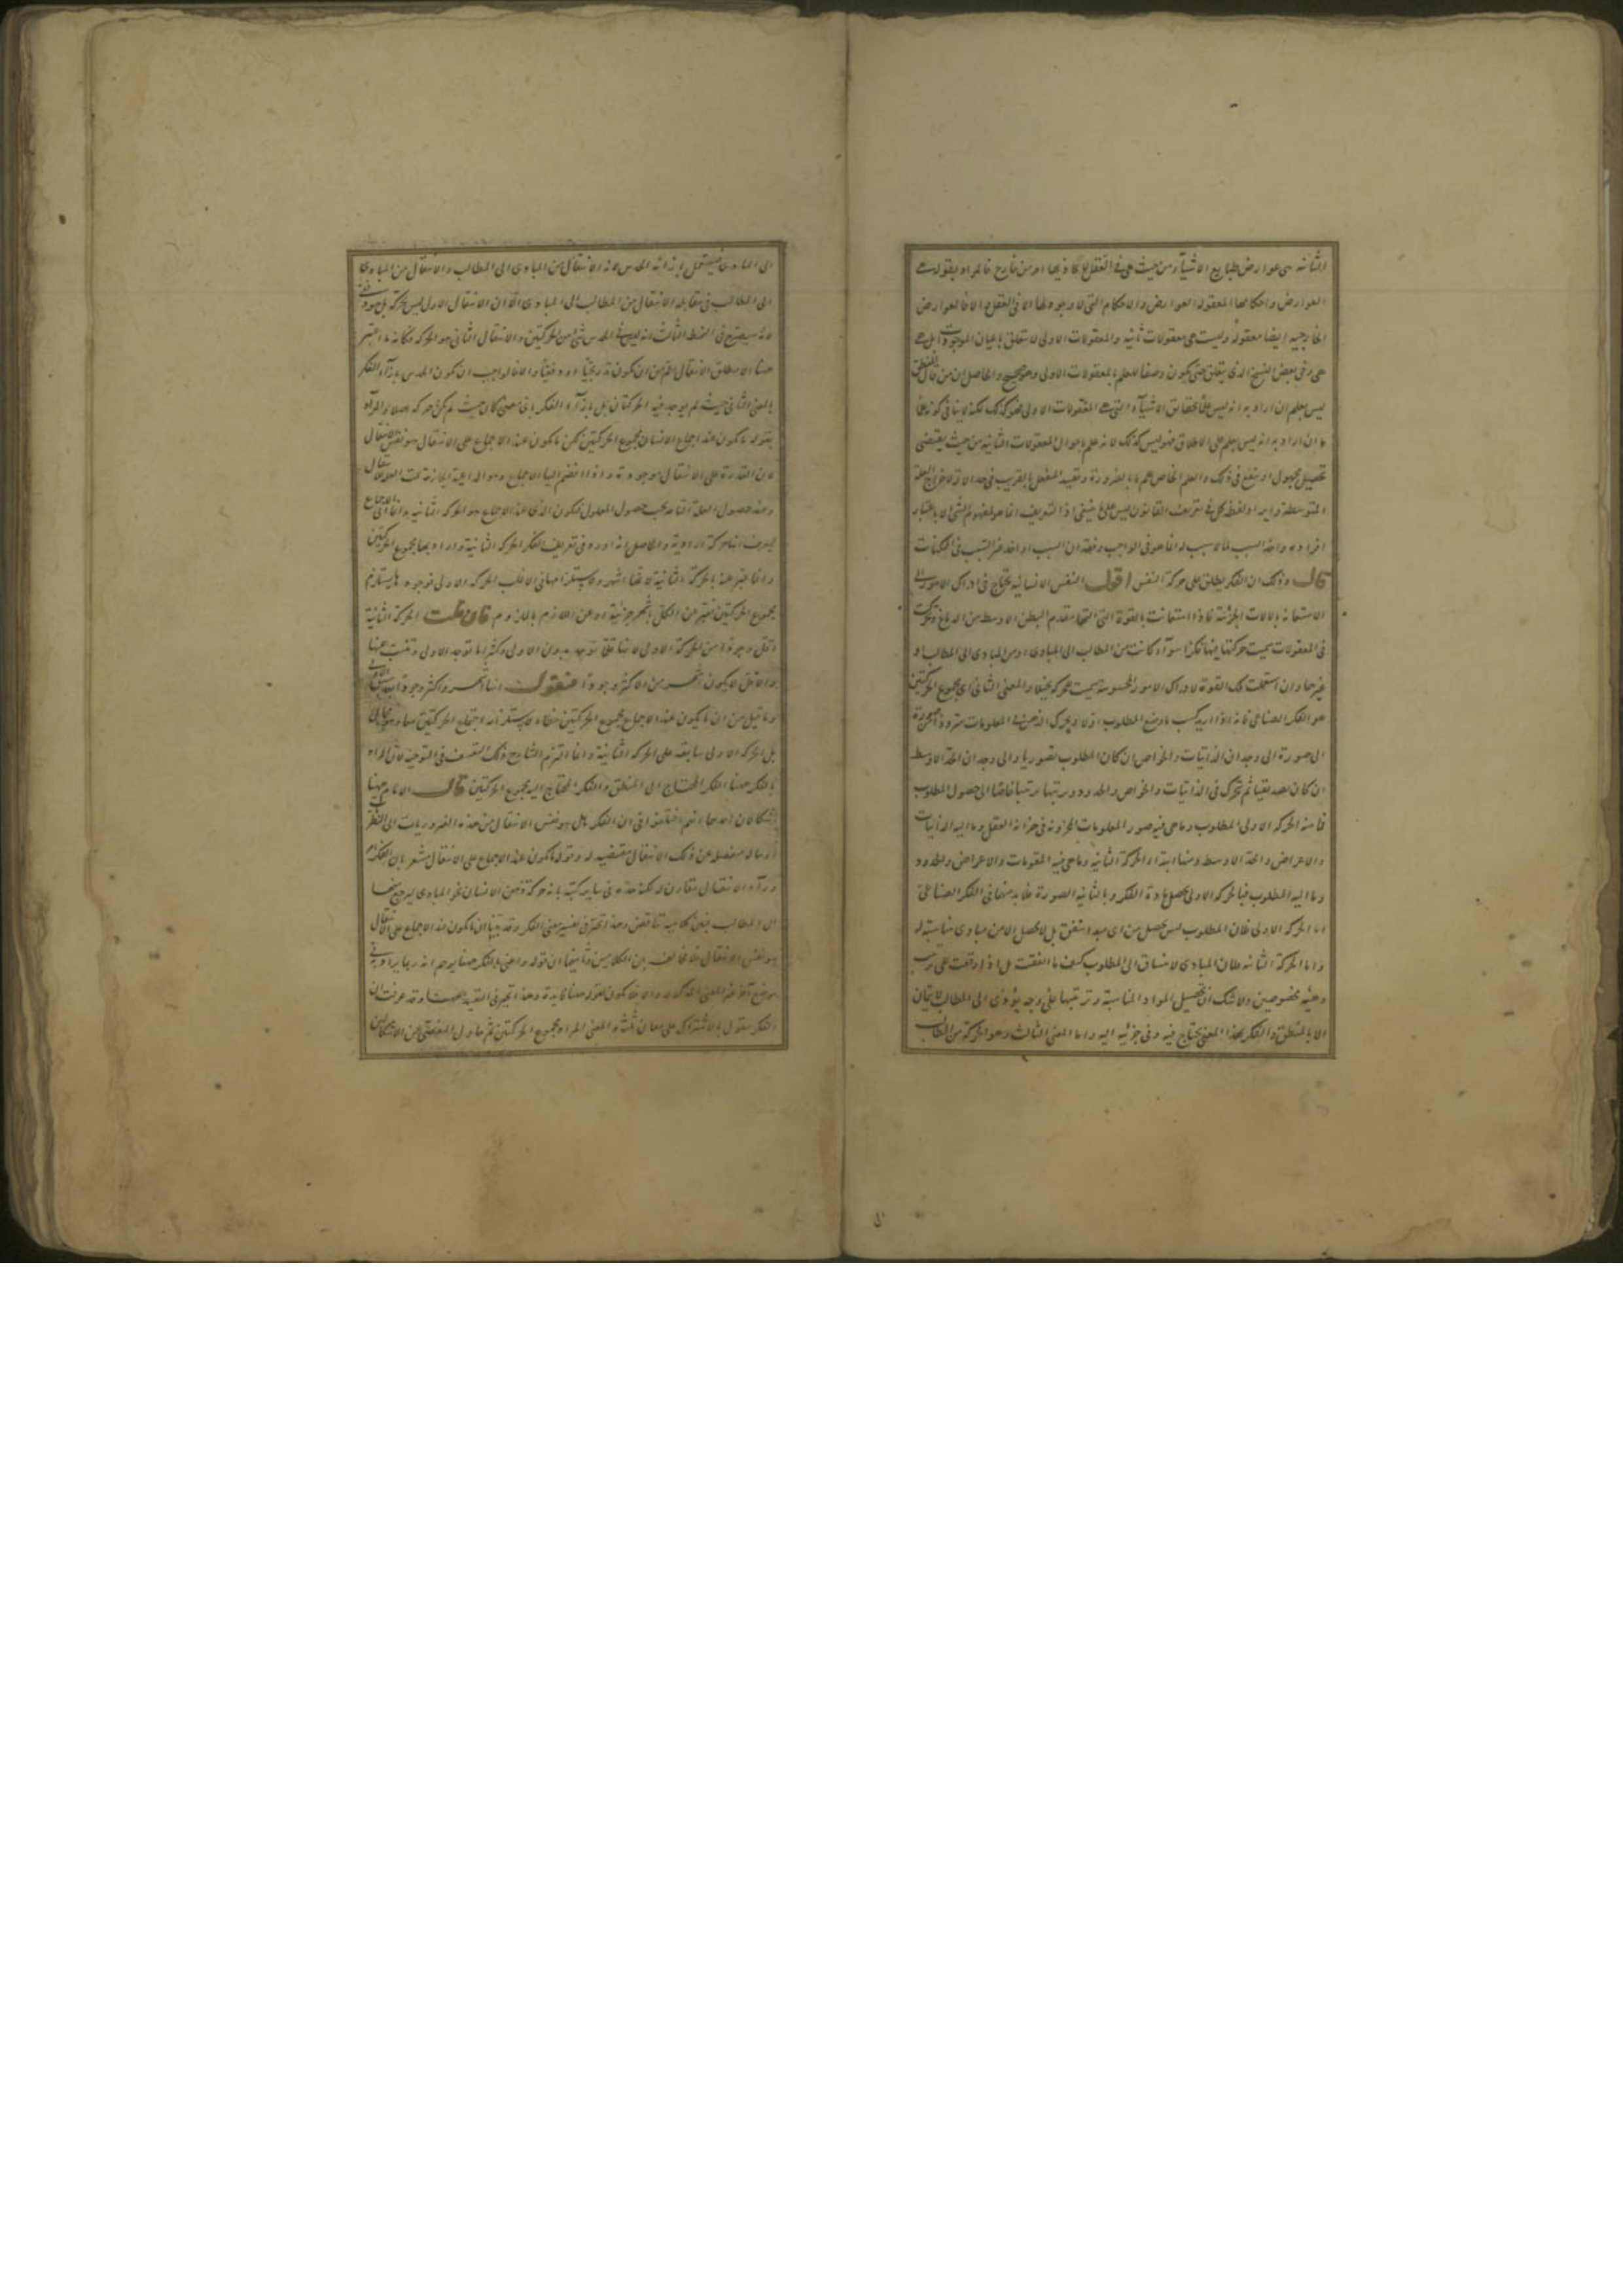 الثانية هي عوارض طبايع الاشياء من حيث هي في التعقل لا يحاذيها امر من خارج فالمراد بقوله
العوارض واحكامها المعقولة العوارض والاحكام التي لا وجود لها الا في العقل والا فالعوارض
الخارجية ايضا معقولة وليست هي معقولات ثانية والمعقولات الاولى لا تتعلق باعيان الموجودات بل
هي وفي بعض النسخ الذي يتعلق حتى يكون وصفا للعلم بالمعقولات الاولى وهو صحيح والحاصل ان من قال المنطق
ليس بعلم ان اراد به انه ليس علما بحقايق الاشياء التي هي المعقولات الاولى فهو كذلك لكنه لا ينافي كونه علما
وان اراد به انه ليس بعلم على الاطلاق فهو ليس كذلك لانه علم باحوال المعقولات الثانية من حيث يقتضي
تحصيل مجهول او ينفع في ذلك والعلم الخاص علم بالضرورة وتقييد المنفعل بالقريب في حد الالة لاخراج العلة
المتوسطة وايراد لفظ كل في تعريف القانون ليس على ما ينبغي اذ التعريف انما هو لمفهوم الشيء لا باعتبار
افراده واخذ السبب لما لا سبب له انما هو في الواجب وفقدان السبب او اخذ غير السبب في الممكنات
قال وذلك ان الفكر يطلق على حركة النفس اقول النفس الانسانية تحتاج في ادراك الامور الى
الاستعانة بالالات الجزئية فاذا استعانت بالقوة التي التها مقدم البطن الاوسط من الدماغ وتحركت
في المعقولات سميت حركتها فيها فكرا سواء كانت من المطالب الى المبادى او من المبادى الى المطالب او
غيرها وان استعملت تلك القوة لادراك الامور المحسوسة سميت حركة تخيلا والمعنى الثاني اي مجموع الحركتين
هو الفكر الصناعي فانه اذا اريد كسب ما وضع المطلوب اولا ويحرك الذهن في المعلومات مترددا من صورة
الى صورة الى وجدان الذاتيات والخواص ان كان المطلوب تصوريا والى وجدان الحد الاوسط
ان كان تصديقيا ثم تحرك في الذاتيات والخواص والحدود ورتبها ترتيبا خاصا الى حصول المطلوب
فما منه الحركة الاولى المطلوب وما هي فيه صور المعلومات المخزونة في خزانة العقل وما اليه الذاتيات
والاعراض والحد الاوسط ومنها ابتداء الحركة الثانية وما هي فيه المقومات والاعراض والحدود
وما اليه المطلوب فبالحركة الاولى يحصل مادة الفكر وبالثانية الصورة فلا بد منهما في الفكر الصناعي
اما الحركة الاولى فلان المطلوب ليس يحصل من اي مبدا يتفق بل لا يحصل الا من مبادى مناسبة له
واما الحركة الثانية فلان المبادى لا تنساق الى المطلوب كيف ما اتفقت بل اذا وقعت على ترتيب
وهيئة مخصوصين ولا شك ان تحصيل المواد المناسبة وترتيبها على وجه يؤدى الى المطالب لا يتمان
الا بالمنطق والفكر بهذا المعنى يحتاج فيه وفي جزئيه اليه واما المعنى الثالث وهو الحركة من المطالب
الى المبادى فيستعمل بازائه الحدس لانه الانتقال من المبادى الى المطالب والانتقال من المبادى
الى المطالب في مقابلة الانتقال من المطالب الى المبادى الا ان الانتقال الاول ليس بحركة بل هو دفعي
لانه سيصرح في النمط الثالث انه ليس في الحدس شيء من الحركتين والانتقال الثاني هو الحركة فكانه ما اعتبر
هنا الا مطلق الانتقال اعم من ان يكون تدريجيا او دفعيا والا فالواجب ان يكون الحدس بازاء الفكر
بالمعنى الثاني حيث لم يوجد فيه الحركتان بل بازاء الفكر باي معنى كان حيث لم يكن حركة اصلا والمراد
بقوله ما يكون عند اجماع الانسان مجموع الحركتين لكن ما يكون عند الاجماع على الانتقال هو نفس الانتقال
لان القدرة على الانتقال موجودة واذا انضم اليها الاجماع وهو الداعية الجازمة تمت العلة
وعند حصول العلة التامة يجب حصول المعلول فيكون الذي عند الاجماع هو الحركة الثانية وانما
ليعرف انها حركة ارادية والحاصل انه اورد في تعريف الفكر الحركة الثانية واراد بها مجموع الحركتين
وانما عبر عنه بالحركة الثانية لانها اشهر ولاستلزامها في الاغلب الحركة الاولى فوجودها يستلزم
مجموع الحركتين فعبر عن الكل باشهر جزئيه او عن اللازم بالملزوم فان قلت الحركة الثانية
اقل وجودا من الحركة الاولى لانها قلما توجد بدون الاولى وكثيرا ما توجد الاولى وتنبت عنها
والاقل لا يكون اشهر من الاكثر وجودا فنقول انها اشهر واكثر وجودا
وما قيل من ان ما يكون عند الاجماع مجموع الحركتين خطا لاستلزامه اجتماع الحركتين معا وهو محال
بل الحركة الاولى سابقة على الحركة الثانية وانما التزم الشارح ذلك التعسف في التوجيه لان المراد
بالفكر هنا الفكر المحتاج الى المنطق والفكر المحتاج اليه مجموع الحركتين قال الامام ههنا
اشكالان احدهما انهم اختلفوا في ان الفكر هل هو نفس الانتقال من هذه الضروريات الى النظريات
او حالة منفصلة عن ذلك الانتقال مقتضية له وقوله ما يكون عند الاجماع على الانتقال مشعر بان الفكر امر
وراء الانتقال مقارن له لكنه حده في ساير كتبه بانه حركة ذهن الانسان نحو المبادى ليرجع منها
الى المطالب فبين كلاميه تناقض وهذا تحير في تفسير معنى الفكر وقد بينا ان ما يكون عند الاجماع على الانتقال
هو نفس الانتقال فلا تخالف بين الكلامين وثانيهما ان قوله واعني بالفكر هنا يوهم انه ربما يراد به في
موضع اخر غير المعنى المذكور والا فلا يكون لقوله هنا فايدة وهذا تحير في التقييد بههنا وقد عرفت ان
الفكر مقول بالاشتراك على معان ثلثة والمعنى المراد مجموع الحركتين ثم حاول التفصي عن الاشكالين